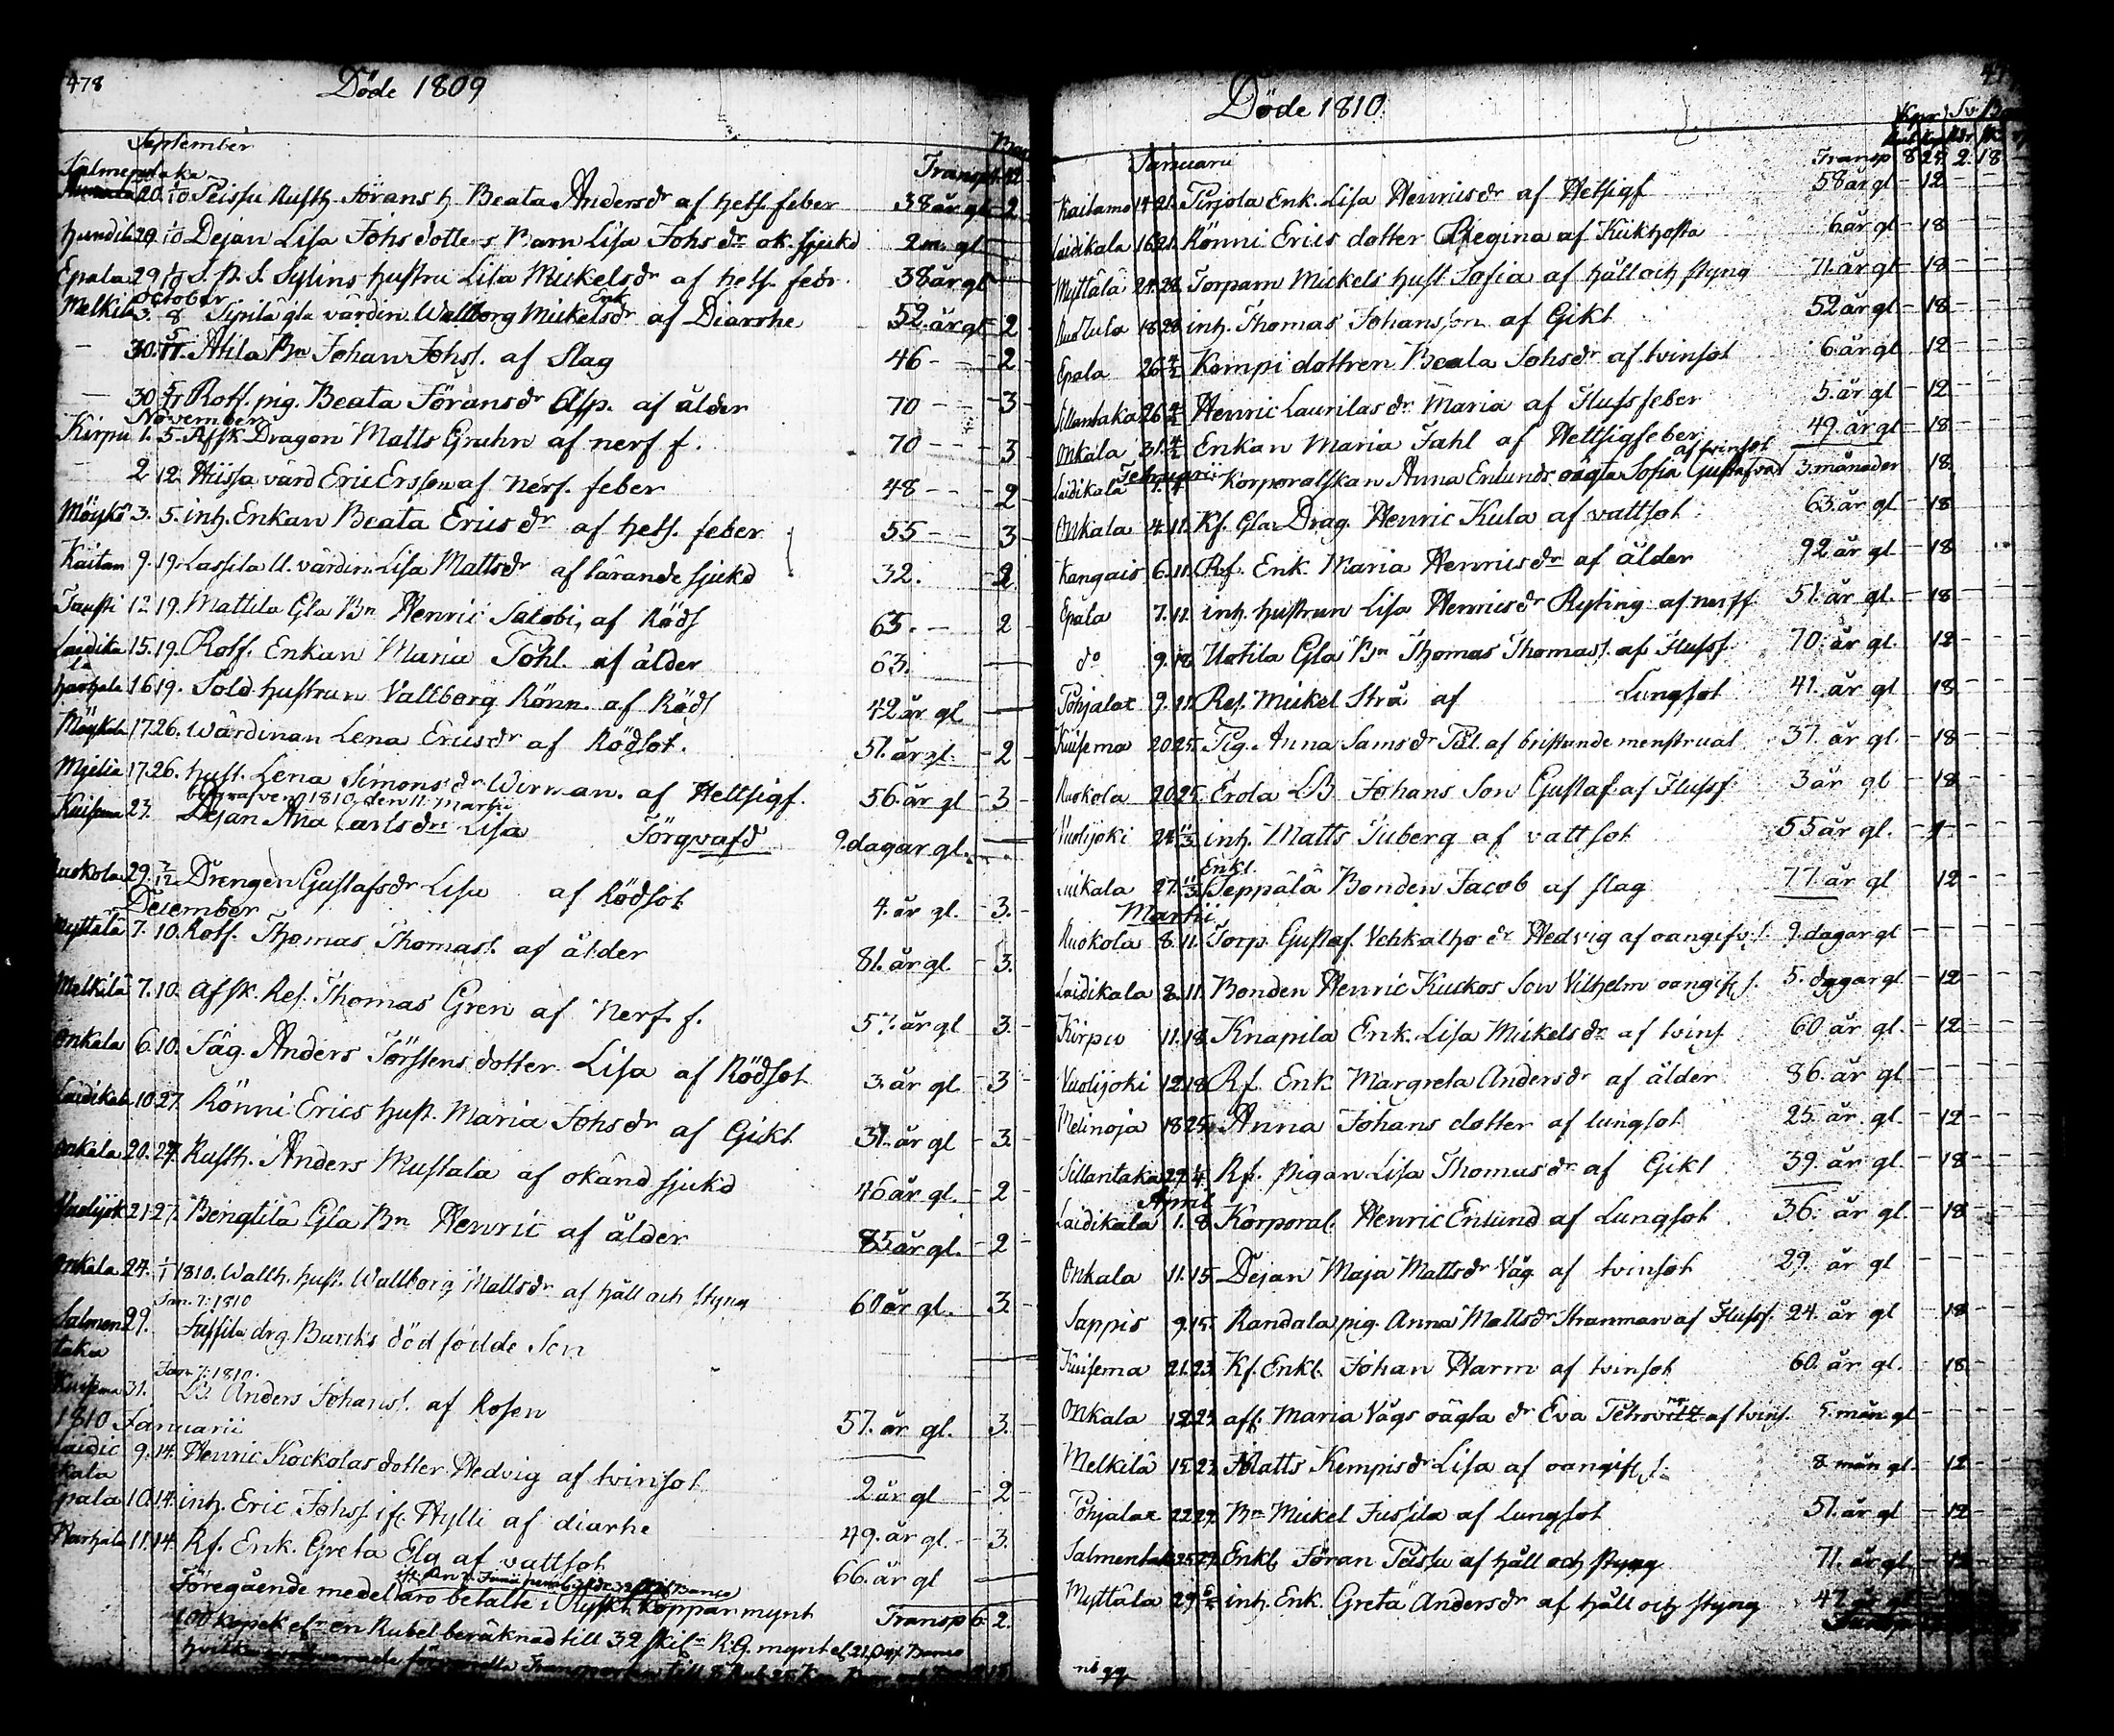 478
Döde 1809
September
Salmentaka
20. Peissu Rusth. Görans h. Beata Andersdr af hets. feber 38 år gl 2
29 Dejan Lisa Johsdotters Barn Lisa Johsdr ok. sjukd 2 m. gl
Epala 29 hustru Lisa Mickelsdr af hets. febr. 38 år gl
October
Melkilä 3. 8 gla värdin. Enk Wallborg Mickelsdr af Diarrhe 52 år gl 2
30. Bn Johan Johss. af Slag 46 2
30 Rotf. pig. Beata Göransdr Asp. af ålder 70 3
November
Kirpu 1. 5. Affsk Dragon Matts Gruhn af nerf f. 70 3
2 12. Hiissa värd Eric Ersson af Nerf. feber 48 2
Möykö 3. 5. inh. Enkan Beata Ericsdr af hets. feber 55 3
Kaitam 9. 19. Lassila U. värdin Lisa Mattsdr af tärande sjukd 32. 2
Tausti 12 19. Mattila Gla Bn Henric Jacobi, af Röds 63. 2
Laidikala 15. 19. Rotf. Enkan Maria Pohl. af ålder 63.
Harhala 16 19. Sold. hustrun Vallborg Rönn. af Röds 42 år gl.
17 26. Wärdinan Lena Ericsdr af Rödsot. 51. år gl. 2
17 26. hust. Lena Simonsdr Wirman. af Hettsigf. 56. år gl 3
begrafven 1810 den 11 Martii
Kuisema 23. Dejan Ana Carlsdrs Lisa Förqvafd 9. dagar gl.
Ruokola 29. Drengen Gustafsdr Lisa af Rödsot 4. år gl. 3.
December
Myttälä 7. 10. Rotf. Thomas Thomass. af ålder 81. år gl. 3.
Melkilä 7. 10. Affsk. Res. Thomas Gren af Nerf. f. 57. år gl 3.
Onkala 6. 10. Såg. Anders Törstens dotter Lisa af Rödsot 3. år gl 3
Laidikala 10. 27. Rönni Erics hust. Maria Johsdr af Gikt 31. år gl 3.
Onkala 20. 27. Rusth. Anders Mustala af okänd sjukd 46 år gl. 2
Vuolijok 21 27. Bengtilä Gla Bn Henric af ålder 85 år gl. 2
Onkala 24. 1/1 1810. Wallh. hust. Wallborg Mattsdr af håll och styng 60 år gl. 3.
Jan. 7. 1810
Salmentaka 29. Jussila drg. död födde Son
Jan. 7. 1810.
Kuisema 31. Anders Johanss. af Rosen 57. år gl. 3.
1810 Januarii
Laidickala 9. 14. Henric Kockolas dotter Hedvig af tvinsot 2 år gl 2
Epala 10. 14. inh. Eric Johss. Hylli af diarhe 49. år gl. 3.
Harhala 11. 14. Rf. Enk. Greta Elg af vattsot 66. år gl
Föregående medel äro betalte i Ryskt Koppar mynt Transp 6. 2.
100 kopek en Rubel beräknad till 32 R.G. mynt Banco
Döde 1810.
Januarii Transp 8 24. 2. 18
Kaitamo 14 21. Pirjola Enk. Lisa Henricsdr af Hetsigf 58 år gl 12
Laidikala 16 21. Rönni Erics dotter Regina af Kikhosta 6 år gl 18
Myttälä 24. 28. Torparn Mickels hust Sofia af håll och styng 71. år gl 18
18 28. inh. Thomas Johansson af Gikt 52 år gl 18
Epala 26 4/2 Kempi dottren Beata Johsdr af tvinsot 6. år gl 12
Sillantaka 26 4/2 Henric Laurilas dr. Maria af Flussfeber 5. år gl 12
Onkala 31. 4/2 Enkan Maria Fahl af Hettsigfeber 49. år gl 18
Februarii
Laidikala Korporalskan Anna Enlunds oägta Sofia Gustafva af tvinsot 3. månader 18.
Onkala 4. 11. Kf. Gla Drag. Henric Kula af vattsot 63. år gl 18
Kangais 6. 11. Rf. Enk. Maria Henricsdr af ålder 92 år gl 18
Epala 7. 11. inh. hustrun Lisa Henricsdr Ryting af nerff. 51. år gl. 18
do 9. 18. Uotila Gla Bn Thomas Thomass. af Flussf. 70. år gl. 12
Pohjalax 9. 11. Res. Mickel Strå af Lungsot 41. år gl 18
Kuisema 20 25. Pig. Anna Samsdr af bristande menstruat. 37. år gl. 18
Ruokola 20 25. Erola LB Johans Son Gustaf af Flussf. 3 år gl 18
Vuolijoki 24 11/3 inh. Matts Tuberg af vattsot 55 år gl.
27. 11/3 Enkl. Seppälä Bonden Jacob af slag 77. år gl 12
Martii
Ruokola 8. 11. Torp. Gustaf Vehkalho dr Hedvig af oangifv. s. 9. dagar gl
Laidikala 8. 11. Bonden Henric Kuckos Son Vilhelm oangif. s. 5. dagar gl 12
Kirpu 11. 18 Knapila Enk. Lisa Mickelsdr af tvins 60 år gl. 12
Vuolijoki 12 18. Rf. Enk. Margreta Andersdr af ålder 86. år gl
Melinoja 18 25. Anna Johans dotter af lungsot 25. år gl 12
Sillantaka 29. Rf. Pigan Lisa Thomasdr af Gikt 39. år gl. 18
April
Laidikala 1. 8. Korporal. Henric Enlund af Lungsot 36. år gl. 18
Onkala 11. 15. Dejan Maja Mattsdr Våg af tvinsot 29. år gl
Sappis 9. 15. Randala pig. Anna Mattsdr Stranman af Flussf. 24. år gl 18
Kuisema 21. 23. Kf. Enkl. Johan Harm af tvinsot 60. år gl. 18
Onkala 12 23. aff. Maria Vågs oägta dr Eva af tvins. 5. mån gl
Melkilä 15. 23. Matts Kempis dr Lisa af oangif. s. 8 mån gl 12
Pohjalax 22 29. Bn Mickel Jussila af Lungsot 51. år gl 12
Salmentak 25 29. Enkl Göran Peissu af håll och styng 71. år gl 12
Myttälä 29. inh. Enk. Greta Andersdr af håll och styng 47 år gl